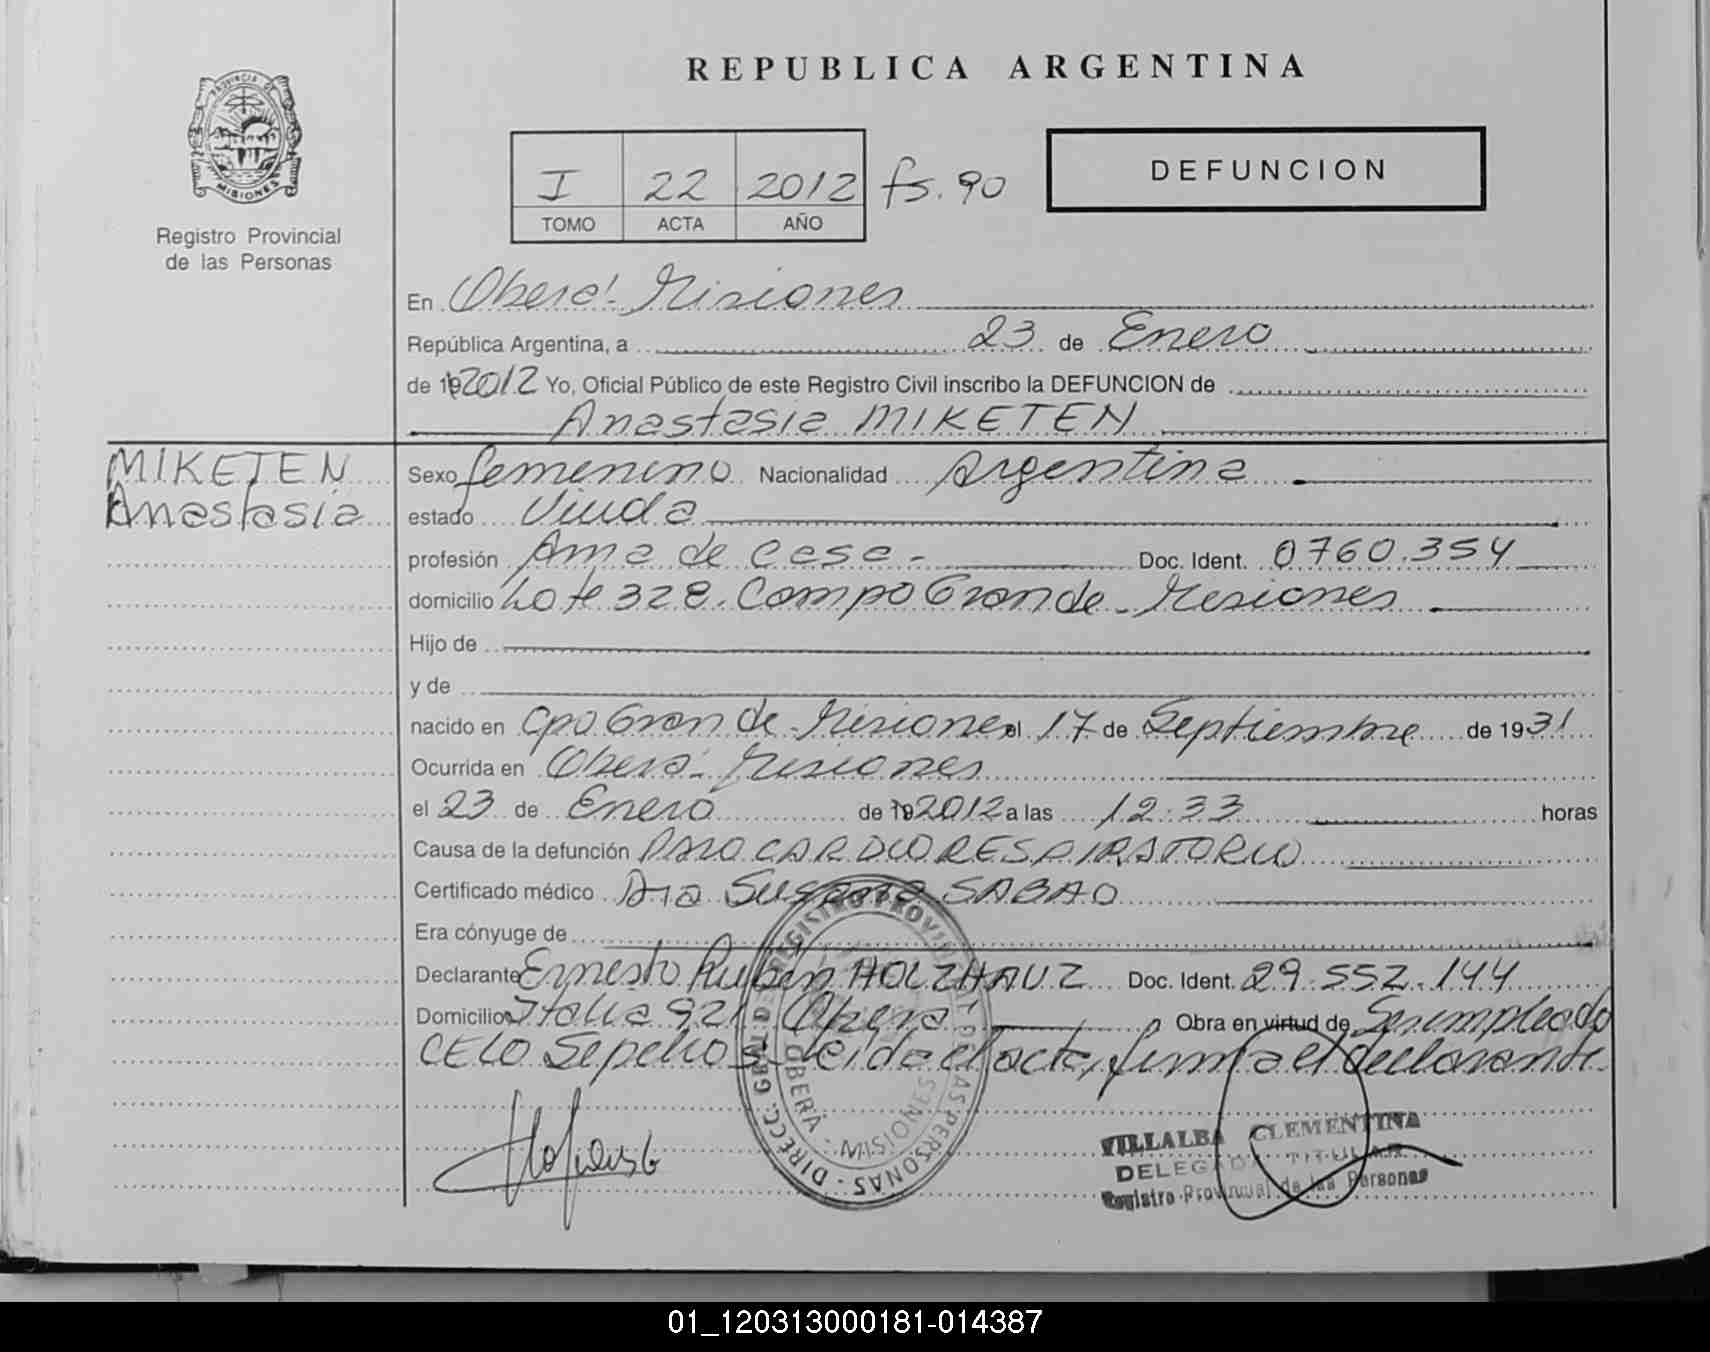 REPUBLICA ARGENTINA
PROVINCIA DE MISIONES
Registro Provincial
de las Personas
I 22 2012 fs. 90
TOMO ACTA AÑO
DEFUNCION
En Oberá - Misiones
República Argentina, a 23 de Enero
de 192012 Yo, Oficial Público de este Registro Civil inscribo la DEFUNCION de
Anastasia MIKETEN
MIKETEN
Anastasia
Sexo femenino Nacionalidad Argentina
estado Viuda
profesión Ama de casa - Doc. Ident. 0760.354
domicilio Lote 328. Campo Grande - Misiones
Hijo de
y de
nacido en Cpo Grande - Misiones el 17 de Septiembre de 1931
Ocurrida en Oberá - Misiones
el 23 de Enero de 192012 a las 12:33 horas
Causa de la defunción PARO CARDIORESPIRATORIO
Certificado médico Dra Susana SABAO
Era cónyuge de
Declarante Ernesto Rubén HOLZHAUZ Doc. Ident. 29.552.144
Domicilio Italia 921 Obera Obra en virtud de Ser empleado
CELO Sepelios - leida el acta, firma el declarante.
DIRECC. GRAL. DE REGISTRO PROVINCIAL DE LAS PERSONAS
OBERÁ - MISIONES
VILLALBA CLEMENTINA
DELEGADA TITULAR
Registro Provincial de las Personas
01_120313000181-014387